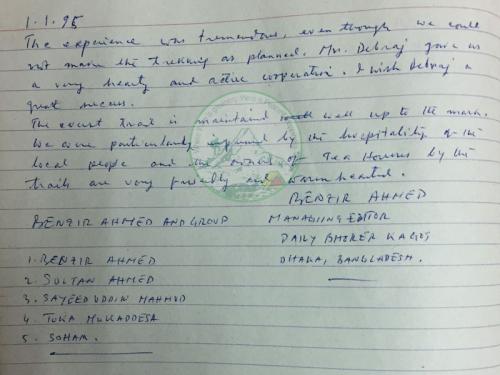 1.1.95
The experience was tremendous, even though we could
not make the trekking as planned. Mr. Debraj gave us
a very hearty and active cooperation. I wish Debraj a
great success.
The event trail is maintained well up to the mark.
We were particularly impressed by the hospitality of the
local people and the owners of Tea Houses by the
trails are very friendly and warm hearted.
BENZIR AHMED
BENZIR AHMED AND GROUP MANAGING EDITOR
DAILY BHORER KAGOJ
1. BENZIR AHMED DHAKA, BANGLADESH.
2. SULTAN AHMED
3. SAYEEDUDDIN MAHMUD
4. TUKA MUKADDESA
5. SOHAM.